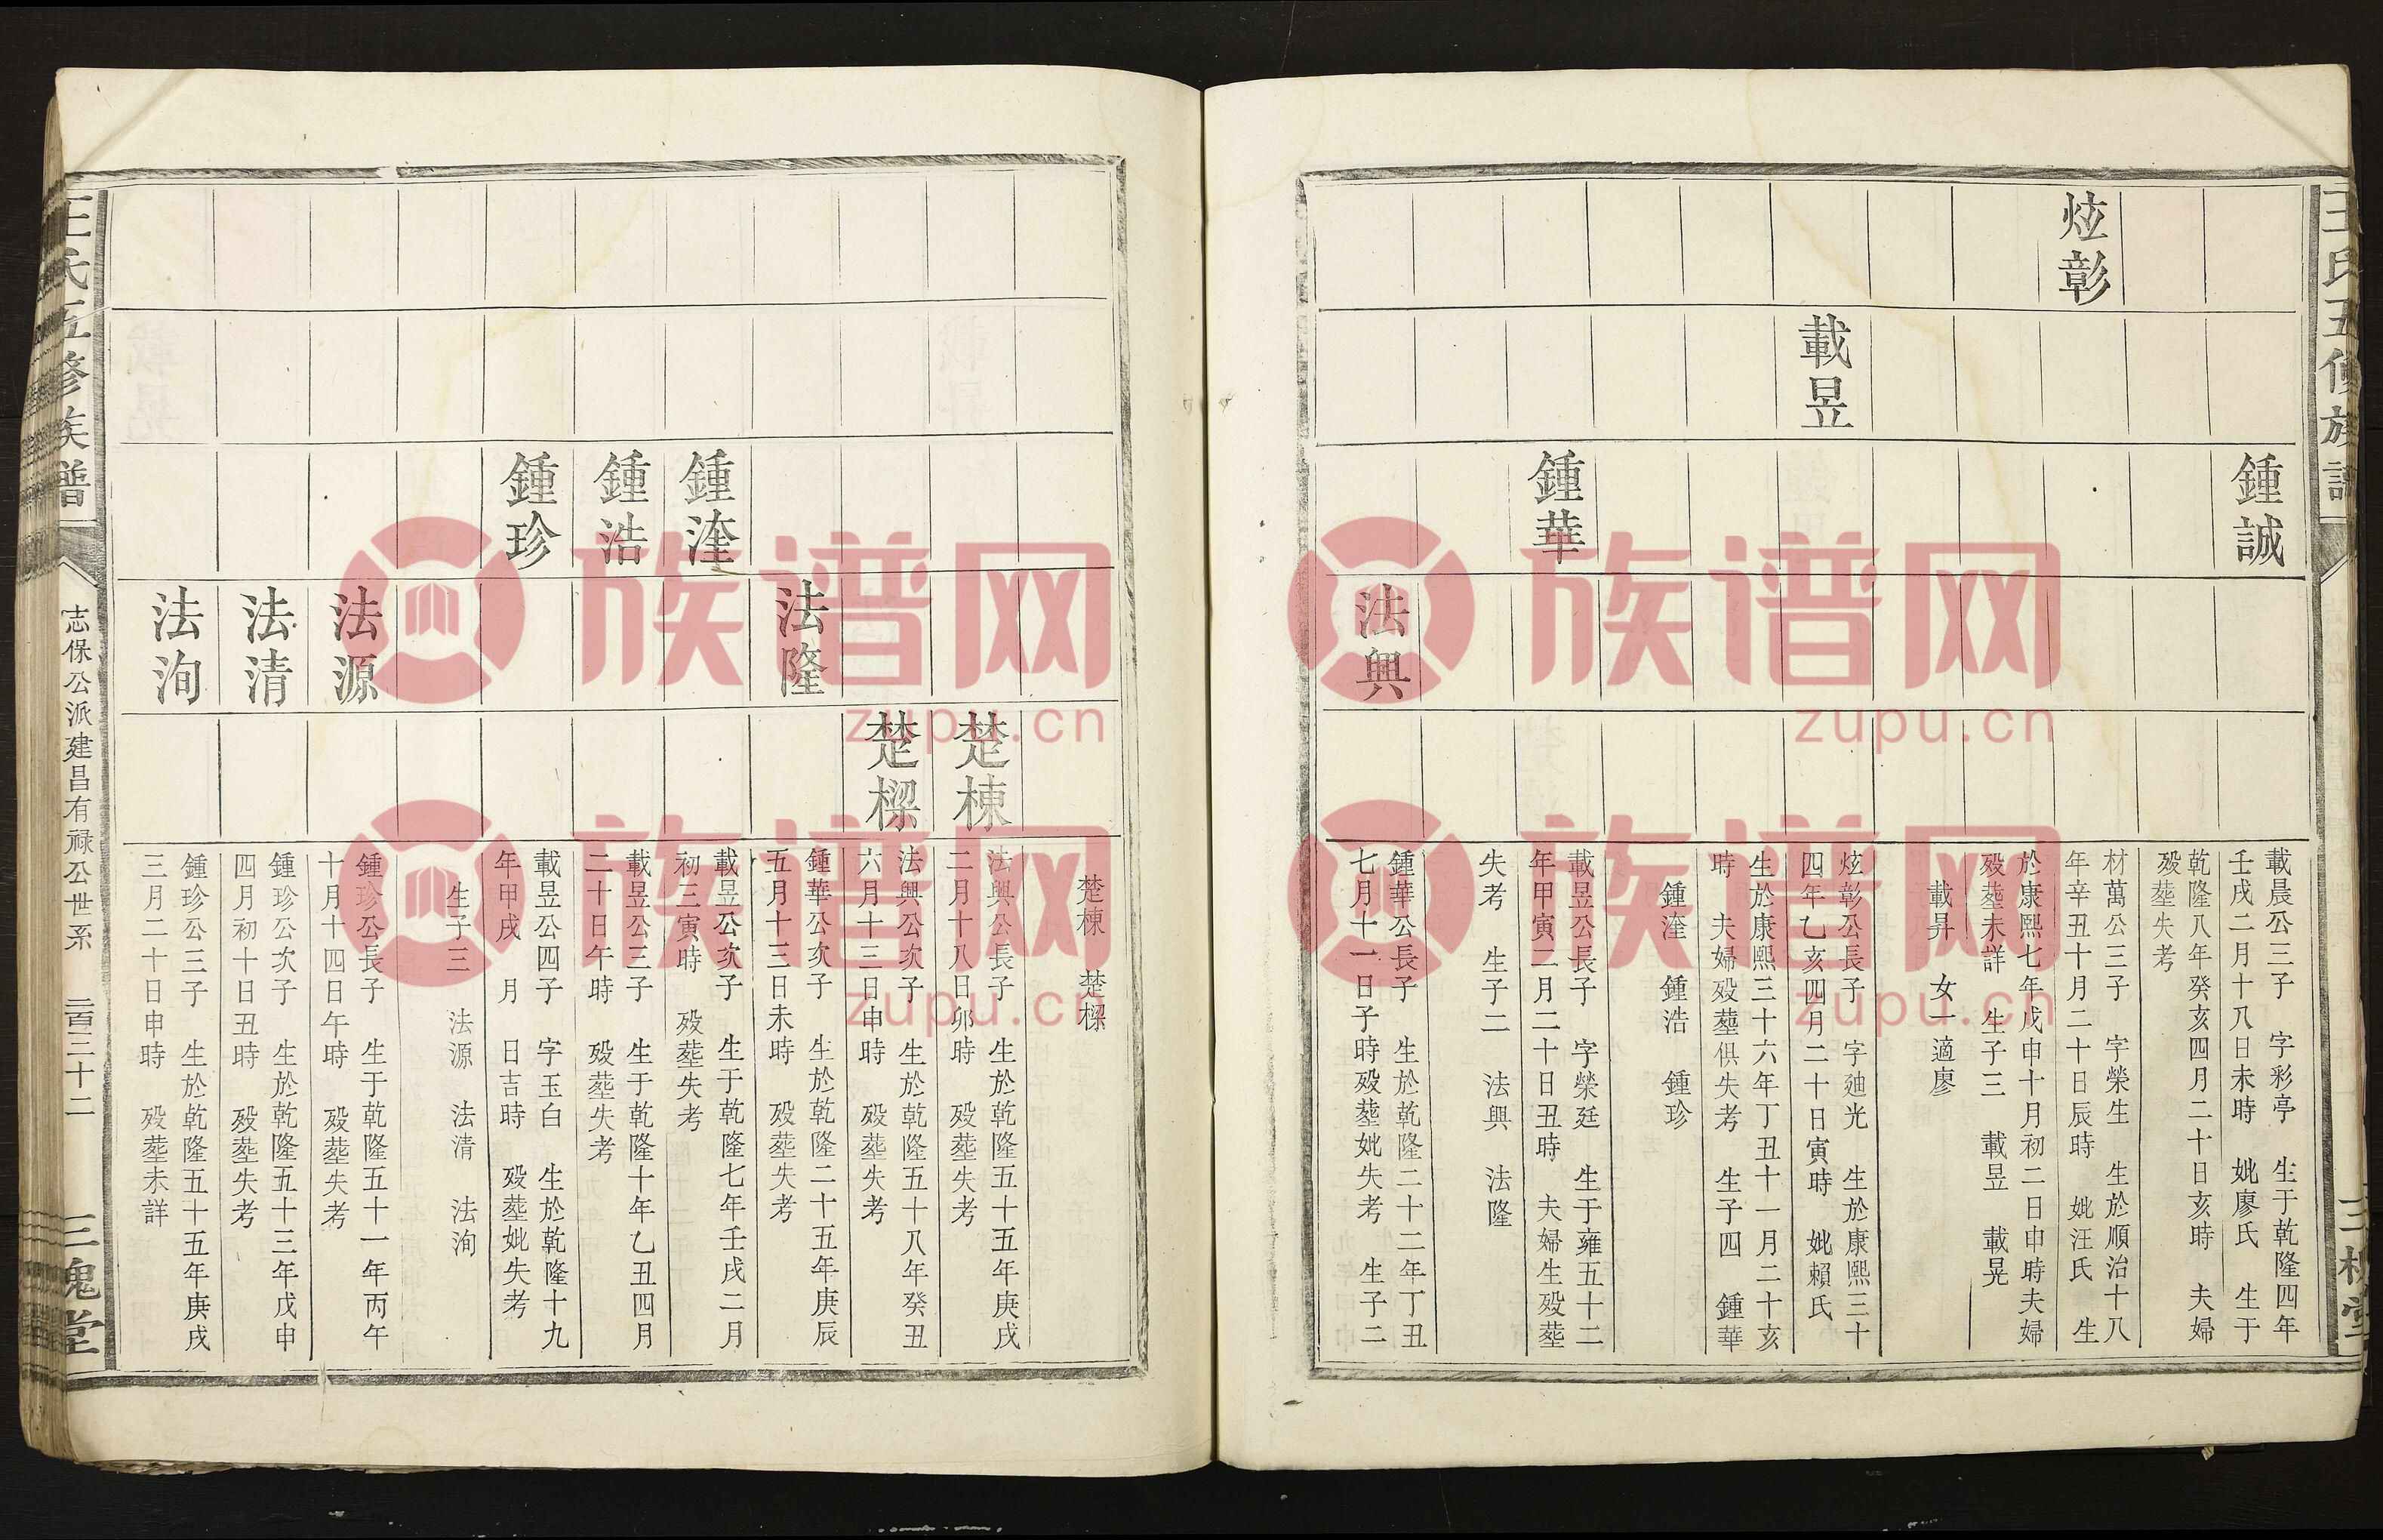 王氏五修族譜
三槐堂
鍾誠
載晨公三子 字彩亭 生于乾隆四年
壬戌二月十八日未時 妣廖氏 生于
乾隆八年癸亥四月二十日亥時 夫婦
歿塟失考
炫彰
材萬公三子 字榮生 生於順治十八
年辛丑十月二十日辰時 妣汪氏 生
於康熙七年戊申十月初二日申時夫婦
歿塟未詳 生子三 載昱 載晃
載昇 女一適廖
載昱
炫彰公長子 字廸光 生於康熙三十
四年乙亥四月二十日寅時 妣賴氏
生於康熙三十六年丁丑十一月二十亥
時 夫婦歿塟俱失考 生子四 鍾華
鍾湰 鍾浩 鍾珍
鍾華
載昱公長子 字榮廷 生于雍五十二
年甲寅二月二十日丑時 夫婦生歿塟
失考 生子二 法興 法隆
法興
鍾華公長子 生於乾隆二十二年丁丑
七月十一日子時歿塟妣失考 生子二
楚棟 楚樑
楚棟
法興公長子 生於乾隆五十五年庚戌
二月十八日卯時 歿塟失考
楚樑
法興公次子 生於乾隆五十八年癸丑
六月十三日申時 歿塟失考
法隆
鍾華公次子 生於乾隆二十五年庚辰
五月十三日未時 歿塟失考
載昱公次子 生于乾隆七年壬戌二月
初三寅時 歿塟失考
鍾浩
載昱公三子 生于乾隆十年乙丑四月
二十日午時 歿塟失考
鍾珍
載昱公四子 字玉白 生於乾隆十九
年甲戌 月 日吉時 歿塟妣失考
生子三 法源 法清 法洵
法源
鍾珍公長子 生于乾隆五十一年丙午
十月十四日午時 歿塟失考
法清
鍾珍公次子 生於乾隆五十三年戊申
四月初十日丑時 歿塟失考
法洵
鍾珍公三子 生於乾隆五十五年庚戌
三月二十日申時 歿塟未詳
王氏五修族譜
志保公派建昌有祿公世系
二百三十二
三槐堂
族谱网
zupu.cn
族谱网
zupu.cn
族谱网
zupu.cn
族谱网
zupu.cn